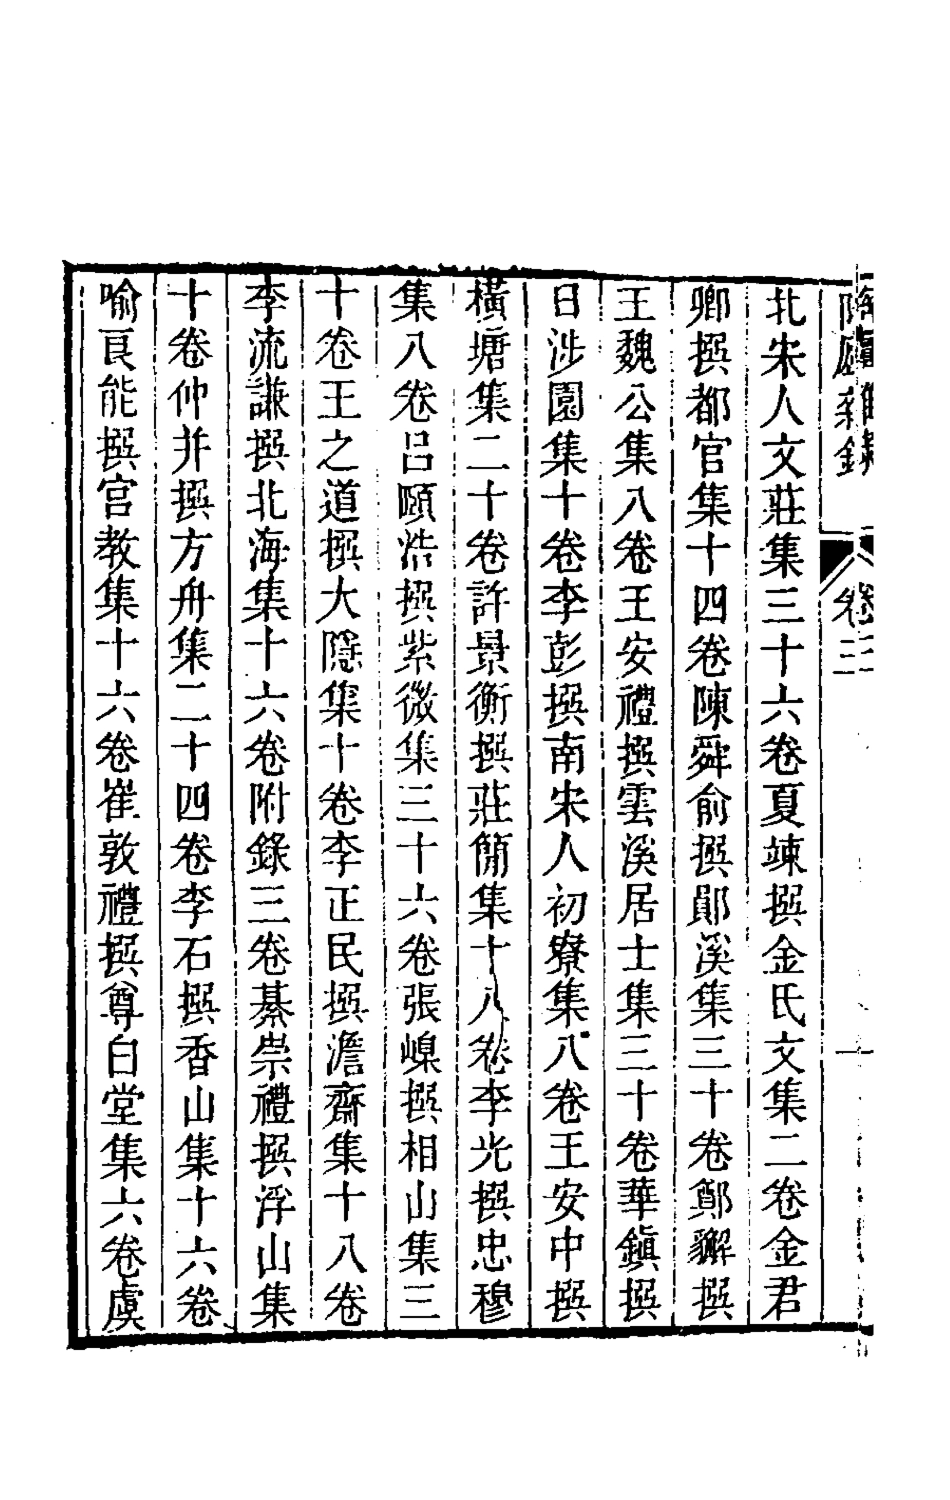 雜錄
卷三
北宋人文莊集三十六卷夏竦撰金氏文集二卷金君
卿撰都官集十四卷陳舜俞撰鄖溪集三十卷鄭獬撰
王魏公集八卷王安禮撰雲溪居士集三十卷華鎮撰
日涉園集十卷李彭撰南宋人初寮集八卷王安中撰
橫塘集二十卷許景衡撰莊簡集十八卷李光撰忠穆
集八卷呂頤浩撰紫微集三十六卷張嵲撰相山集三
十卷王之道撰大隱集十卷李正民撰澹齋集十八卷
李流謙撰北海集十六卷附錄三卷綦崇禮撰浮山集
十卷仲并撰方舟集二十四卷李石撰香山集十六卷
喻良能撰宮教集十六卷崔敦禮撰尊白堂集六卷虞